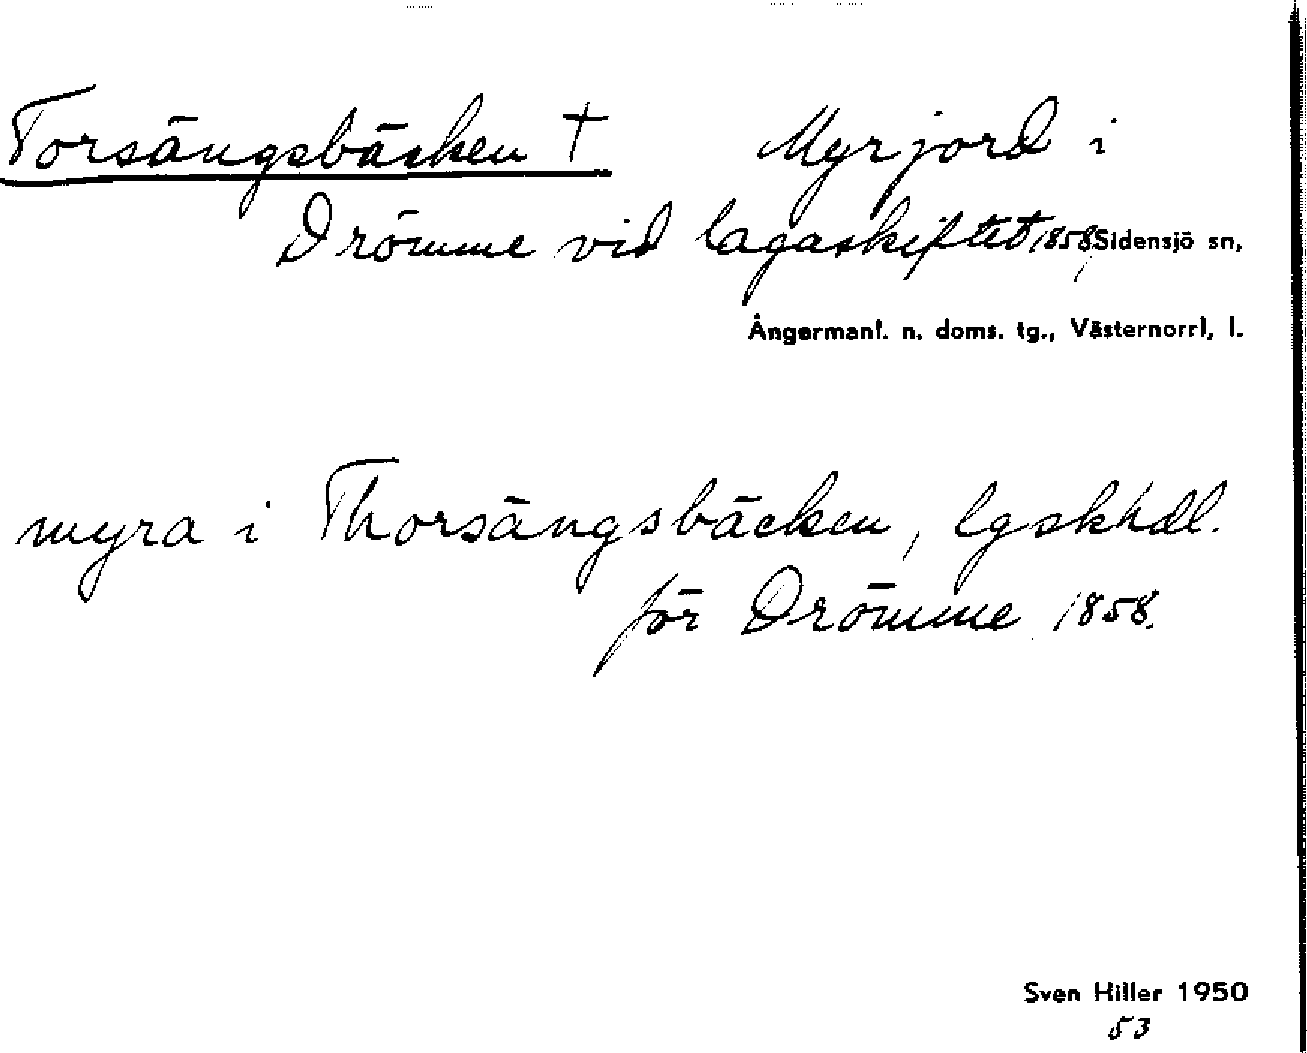 Torsängsbäcken † Myrjord i
Drömme vid lagaskiftet 1858, Sidensjö sn,
Ångermanl. n. doms. tg., Västernorrl, l.
myra i Thorsängsbäcken, lgskhdl.
för Drömme 1858.
Sven Hiller 1950
53